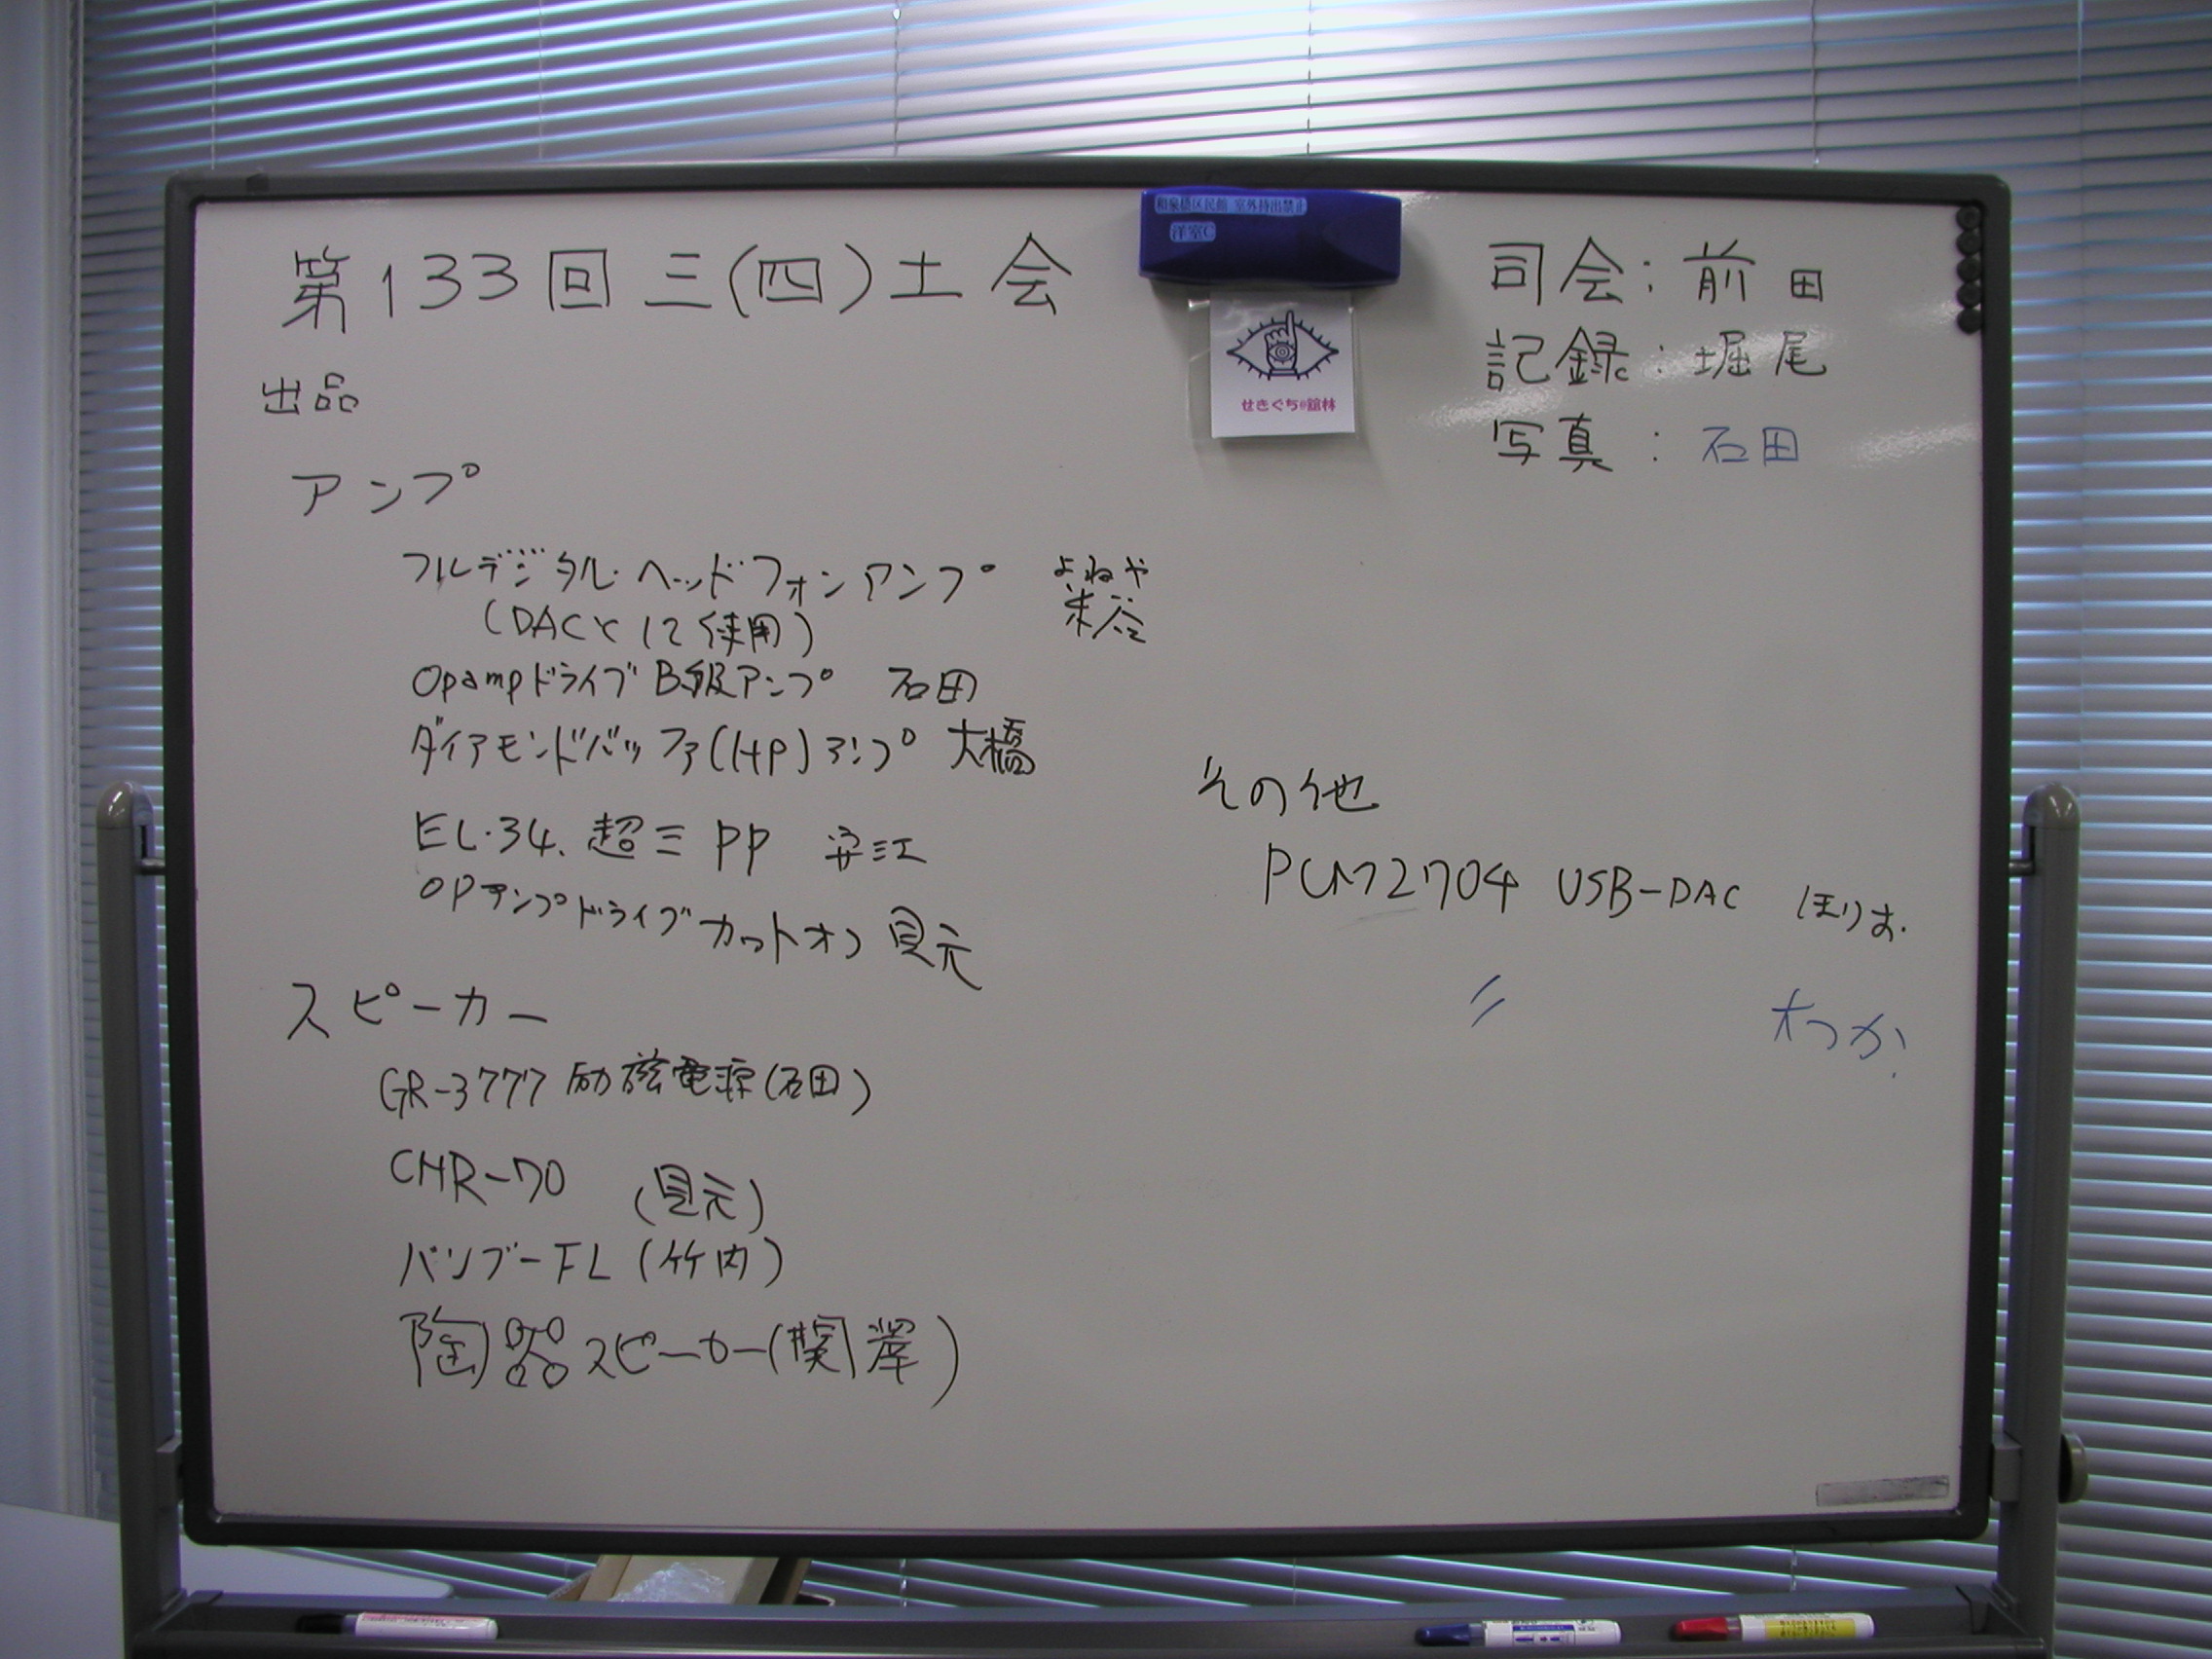 第133回三(四)土会
出品
アンプ
フルデジタル・ヘッドフォンアンプ よねや
(DACとして使用) 米谷
Opampドライブ B級アンプ 石田
ダイアモンドバッファ(HP)アンプ 大橋
EL・34. 超三 PP 安江
OPアンプドライブ カットオフ 見元
スピーカー
GR-3777 励磁電源(石田)
CHR-70 (見元)
バンブーFL (竹内)
陶器スピーカー(関澤)
和泉橋区民館 室外持出禁止
洋室C
せきぐち@館林
司会：前田
記録：堀尾
写真：石田
その他
PCM2704 USB-DAC ほりお.
〃 わか